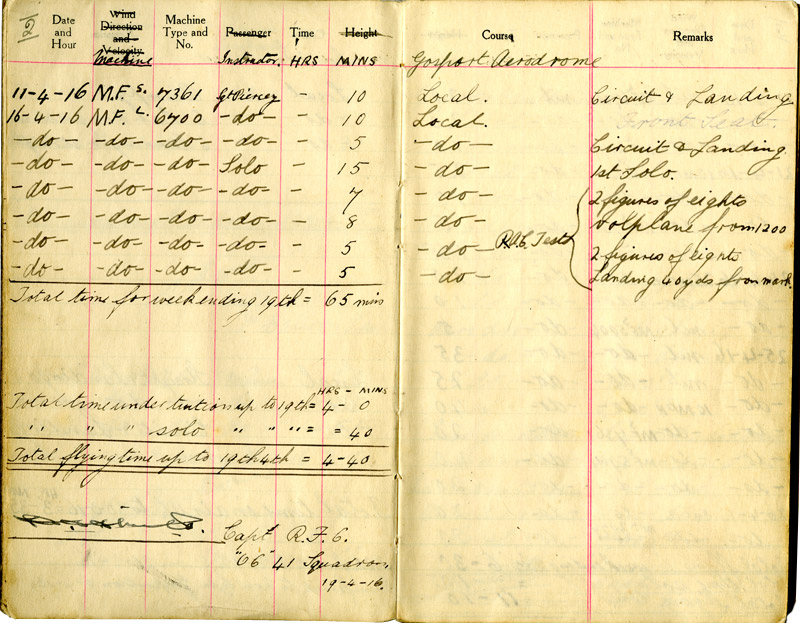 12
Date and Hour Wind Direction and Velocity Machine Type and No. Passenger Time Height Course Remarks
Machine Instructor. HRS MINS Gosport Aerodrome
11-4-16 M.F. S. 7361 - 10 Local. Circuit & Landing
16-4-16 M.F. L. 6700 -do- - 10 Local. Front Seat.
-do- -do- -do- -do- - 5 -do- Circuit & Landing
-do- -do- -do- Solo - 15 -do- 1st Solo.
-do- -do- -do- -do- - 7 -do- 2 figures of eights
-do- -do- -do- -do- - 8 -do- volplane from 1200
-do- -do- -do- -do- - 5 -do- R.A.C. Tests 2 figures of eights
-do- -do- -do- -do- - 5 -do- Landing 40yds from mark.
Total time for week ending 19th = 65 mins
HRS - MINS
Total time under tuition up to 19th = 4 - 0
" " " solo " " " = = 40
Total flying time up to 19th 4th = 4-40
Capt. R.F.C.
41 Squadron.
19-4-16.